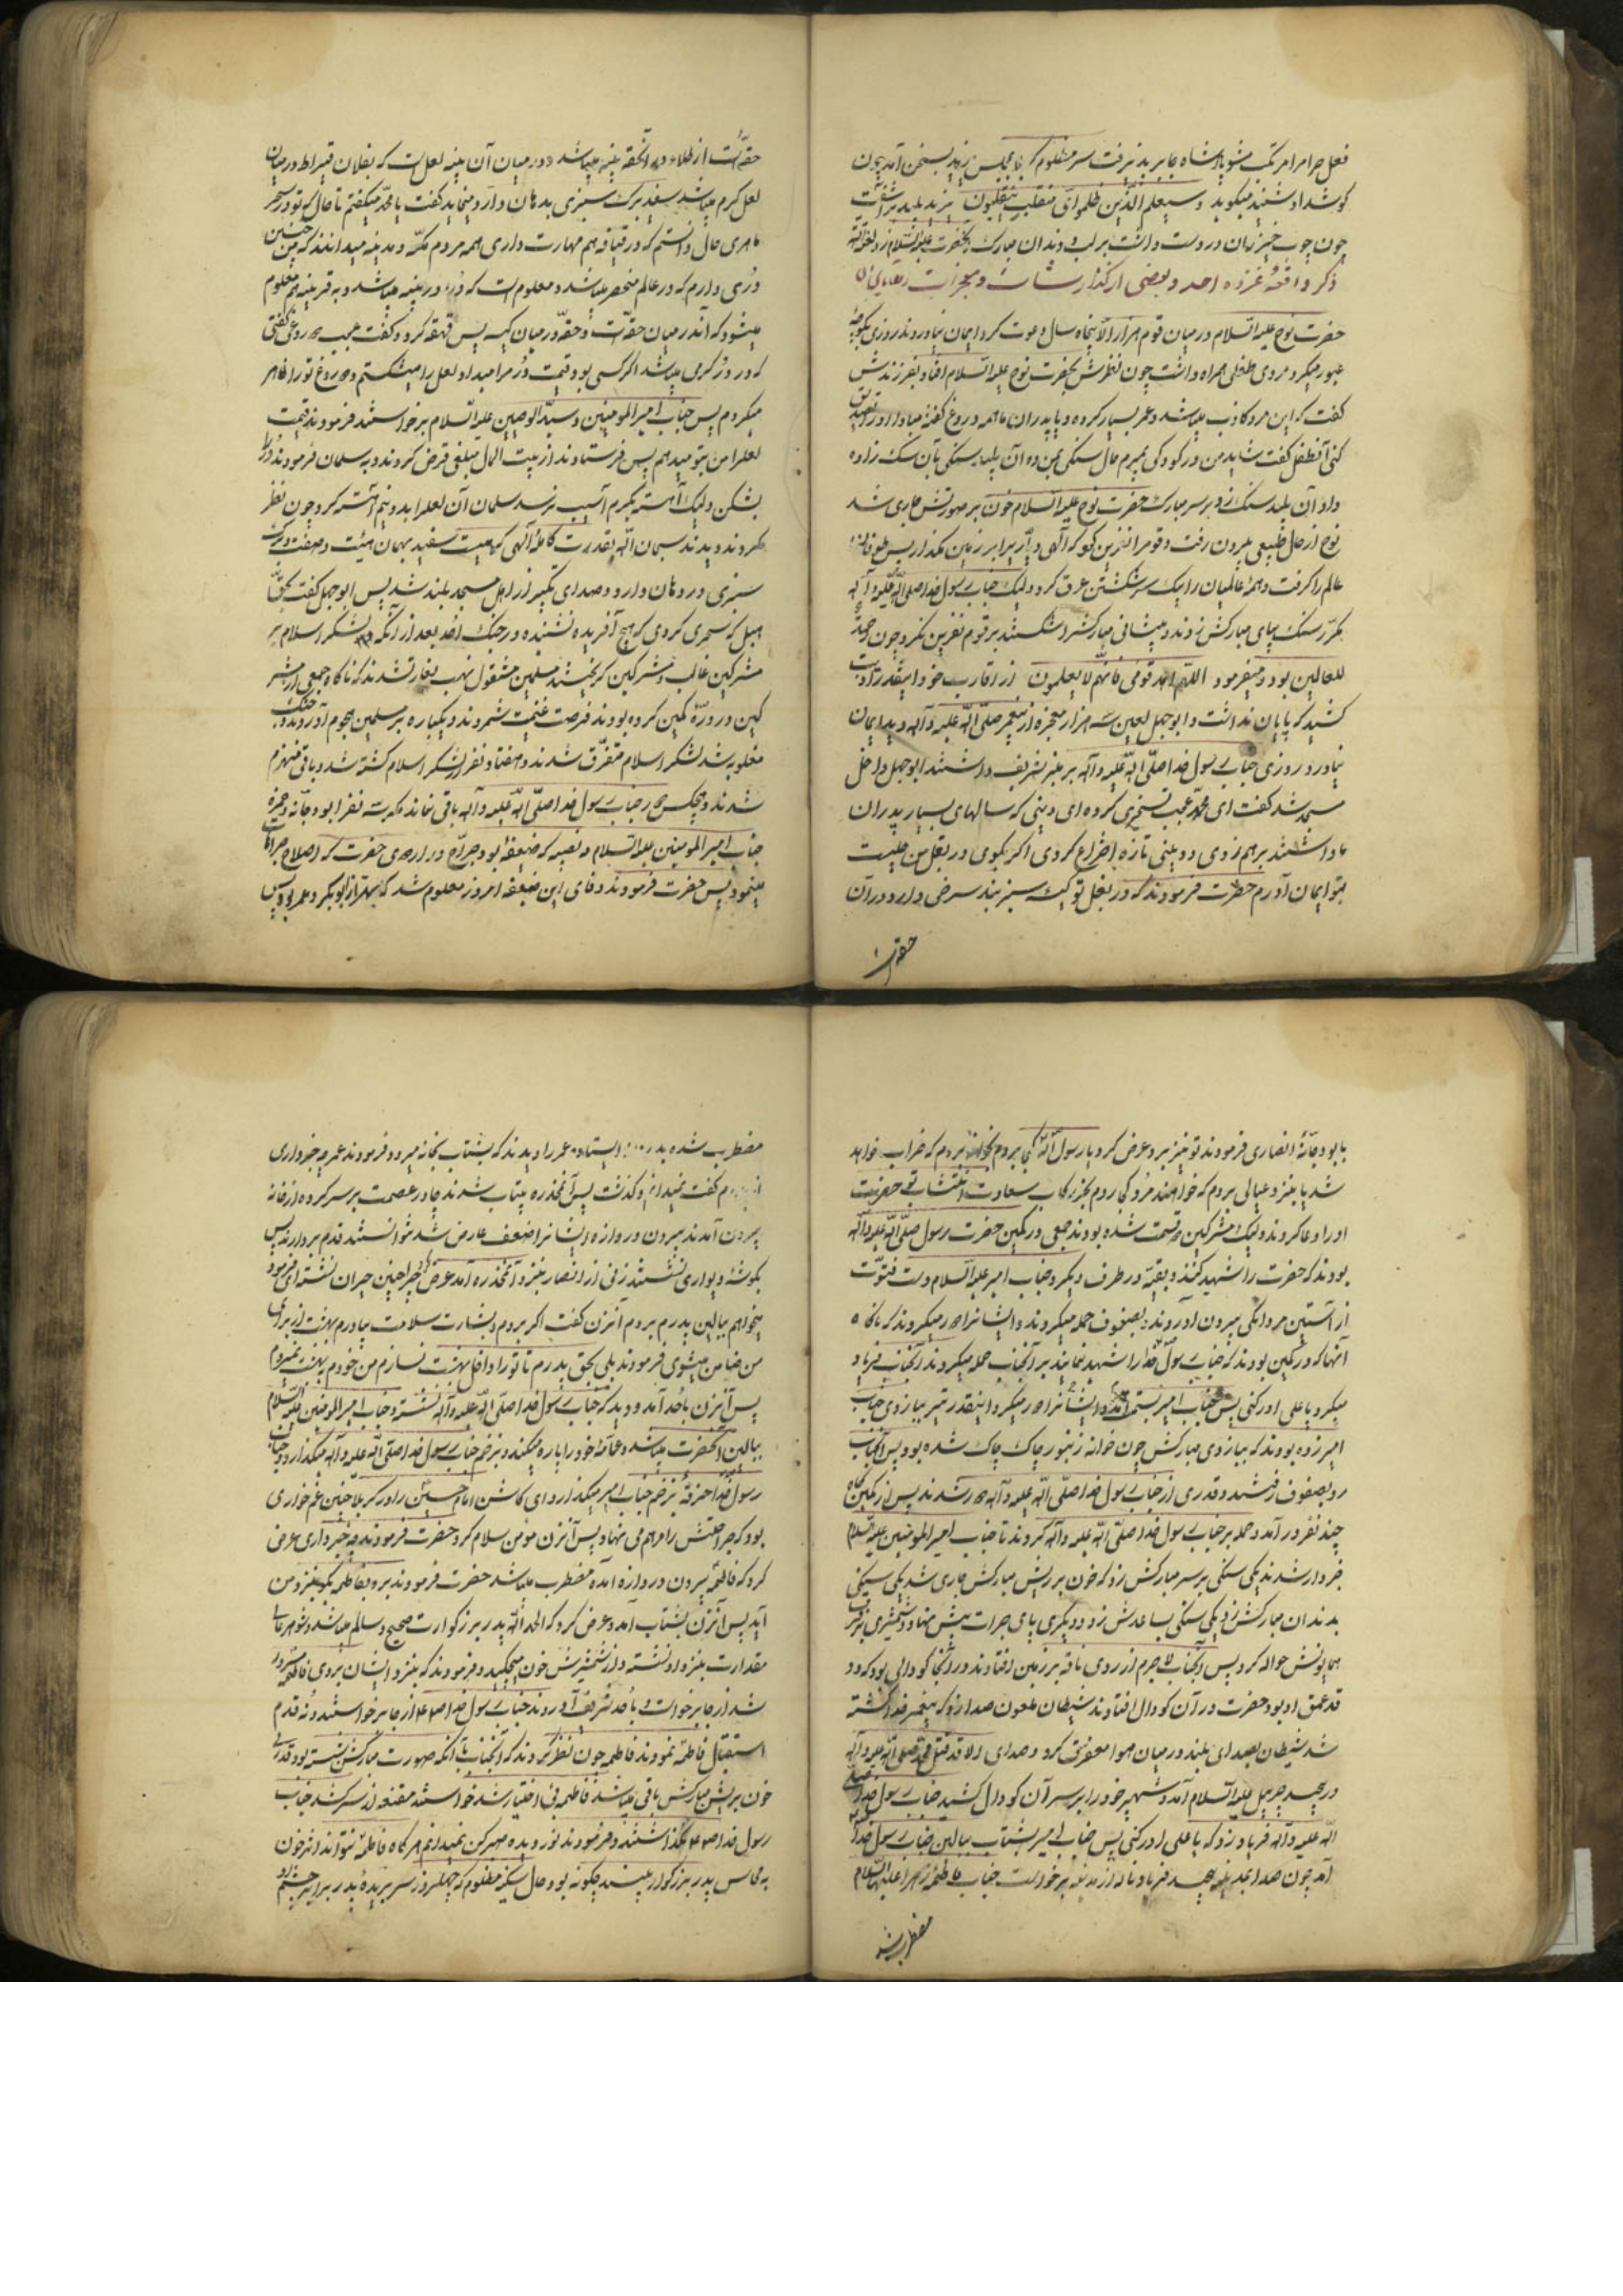 فعل حرام مرتکب مشو پادشاه جابر پند نپذیرفت سر مظلوم که بمجلس یزید بسخن آمد چون
گوشداد شنید میگوید وسیعلم الّذین ظلموا ایّ منقلب ینقلبون یزید پلید
چون چوب خیزران در دست داشت بر لب و دندان مبارک آنحضرت علیه السّلام زد
ذکر واقعهٔ غزوه احد و بعضی از گذارشات و معجزات
حضرت نوح علیه السّلام در میان قوم هزار الّا پنجاه سال دعوت کرد ایمان نیاوردند روزی بکوچهٔ
عبور میکرد مردی طفلی همراه داشت چون نظرش بحضرت نوح علیه السّلام افتاد بفرزندش
گفت که این مرد کاذب میباشد و عمر بسیار کرده و با پدران ما همه دروغ گفته مبادا او را تصدیق
کنی آنطفل گفت شاید من در کودکی بمیرم حال سنگی بمن ده آن پلید سنگی بآن سگ زاده
داد آن پلید سنگ زد بر سر مبارک حضرت نوح علیه السلام خون بر صورتش جاری شد
نوح از حال طبیعی بیرون رفت و قوم را نفرین کرد که الهی دیّاری را بر زمین مگذار پس طوفان
عالم را گرفت و همهٔ عالمیان را بیک سر شکستن غرق کرد ولیک جناب رسول خدا صلّی الله علیه و آله
مکرّر سنگ بپای مبارکش زدند و پیشانی مبارکش را شکستند بر قوم نفرین نکرد چون رحمة
للعالمین بود و میفرمود اللّهم اهد قومی فانّهم لا یعلمون از اقارب خود اینقدر اذیت
کشید که پایان نداشت و ابوجهل لعین سه هزار معجزه از پیغمبر صلّی الله علیه و آله دید ایمان
نیاورد روزی جناب رسول خدا صلّی الله علیه و آله بر منبر تشریف داشتند ابوجهل داخل
مسجد شد گفت ای محمّد عجب تسخیری کرده‌ای دینی که سالهای بسیار پدران
ما داشتند برهم زدی و دینی تازه اختراع کردی اگر بگوئی در بغل من چیست
بتو ایمان آورم حضرت فرمودند که در بغل تو کیسه سبز بند سرخی دارد و در آن
حقه‌ایست
حقه‌ایست از طلا و در آنحقه پنبه میباشد و در میان آن پنبه لعلی است که بفلان قیراط در میان
لعل کرم میباشد سفید برگ سبزی بدهان دارد مینماید گفت یا محمّد میگفتم تا حال که تو در سحر
ماهری حال دانستم که در قیافه هم مهارت داری همه مردم مکّه و مدینه میدانند که من چنین
درّی دارم که در عالم منحصر میباشد و معلوم است که در در پنبه میباشد و به قرینه هم معلوم
میشود که آن در میان حقّه است و حقّه در میان کیسه پس قهقهه کرد و گفت عجب دروغی گفتی
که در درّ کرمی میباشد اگر کسی بود قیمت درّ مرا میداد لعل را میشکستم و دروغ تو را ظاهر
میکردم پس جناب امیر المومنین و سیّد الوصیّین علیه السّلام برخواستند فرمودند قیمت
لعل را من بتو میدهم پس فرستادند از بیت المال مبلغی قرض کردند و به سلمان فرمودند درّ را
بشکن ولیک آهسته بکرم آسیب نرسد سلمان آن لعل را بدو نیم آهسته کرد چون نظر
کردند دیدند سبحان الله بقدرت کاملهٔ الهی کرمیست سفید بهمان هیئت و صفت و برگ
سبزی در دهان دارد و صدای تکبیر از اهل مسجد بلند شد پس ابوجهل گفت بحقّ
هبل که سحری کردی که هیچ آفریده نشنیده در جنگ احد بعد از آنکه لشکر اسلام بر
مشرکین غالب و مشرکین گریختند مسلمین مشغول نهب بغارت شدند که ناگاه جمعی از مشر
کین در درّه کمین کرده بودند فرصت غنیمت شمردند و یکباره بر مسلمین هجوم آوردند جنگ
مغلوبه شد لشکر اسلام متفرّق شدند و هفتاد نفر از لشکر اسلام کشته شد و باقی منهزم
شدند و هیچکس در جناب رسول خدا صلّی الله علیه و آله باقی نماند مگر سه نفر ابو دجّانه و حمزه
جناب امیر المومنین علیه السلام و نصیبه که ضعیفهٔ بود جرّاح در اردوی حضرت که اصلاح جراحات
مینمود پس حضرت فرمودند وفای این ضعیفه امروز معلوم شد که بهتر از ابوبکر و عمر بود پس
بابو دجّانهٔ انصاری فرمودند تو نیز برو عرض کرد یا رسول الله کجا بروم بخانه بروم که خراب خواهد
شد یا بنزد عیالی بروم که خواهند مرد کجا روم بجز رکاب سعادت انتساب تو حضرت
او را دعا کردند ولیک مشرکین دو قسمت شده بودند جمعی در کمین حضرت رسول صلّی الله علیه و آله
بودند که حضرت را شهید کنند و بقیّه در طرف دیگر و جناب امیر علیه السّلام دست فتوّت
از آستین مردانگی بیرون آوردند بصفوف حمله میکردند و ایشانرا دور میکردند که ناگاه
آنها که در کمین بودند که جناب رسول خدا را شهید نمایند بر آنجناب حمله میکردند آنجناب فریاد
میکرد یا علی ادرکنی پس جناب امیر بتندی ایشانرا دور میکرد اینقدر تیر ببازوی جناب
امیر زده بودند که ببازوی مبارکش چون خانه زنبور چاک چاک شده بود پس آنجناب
رو بصفوف رفتند و قدری از جناب رسول خدا صلّی الله علیه و آله دور شدند پس از کمین گاه
چند نفر در آمد و حمله بر جناب رسول خدا صلّی الله علیه و آله کردند تا جناب امیر المومنین علیه السّلام
خبردار شدند یکی سنگی بر سر مبارکش زد که خون بر ریش مبارکش جاری شد یکی سنگی
بدندان مبارکش زد یکی سنگی بساعدش زد و دیگری پای جرات پیش نهاد و شمشیری بر فرق
همایونش حواله کرد پس آنجناب لا جرم از روی ناقه بر زمین افتادند و در آنجا گودالی بود که دو
قد عمق او بود حضرت در آن گودال افتادند شیطان ملعون صدا زد که پیغمبر خدا کشته
شد شیطان بصدای بلند در میان هوا معرفتی کرد و صدای الا قد قتل محمّد صلّی الله علیه و آله
در پیچید جبرئیل علیه السّلام آمد و شهپر خود را بر سر آن گودال کشید جناب رسول خدا صلّی
الله علیه و آله فریاد زد که یا علی ادرکنی پس جناب امیر بشتاب ببالین جناب رسول خدا
آمد چون صدا بمدینه رسید فریاد و ناله از مدینه برخواست جناب فاطمهٔ زهرا علیها السّلام
مضطرب شده
مضطرب شده بدر ایستاده عمر را دیدند که بشتاب بخانه میرود فرمودند عمر چه خبر داری
از پدرم گفت نمیدانم و گذشت پس آنمخدره بیتاب شدند چادر عصمت بر سر کرده از خانه
بیرون آمدند بیرون دروازه ایشانرا ضعف عارض شد نتوانستند قدم بردارند پس
بگوشهٔ دیواری نشستند زنی از انصار بنزد آنمخدره آمد عرض کرد چرا چنین حیران نشسته‌ای فرمود
میخواهم ببالین پدرم بروم آنزن گفت اگر بروم و بشارت سلامت بیاورم بهشت از برای
من ضامن میشوی فرمودند بلی بحق پدرم تا تو را داخل بهشت نسازم من خودم بهشت نمیروم
پس آنزن باحد آمد و دید که جناب رسول خدا صلّی الله علیه و آله نشسته و جناب امیر المومنین علیه السّلام
ببالین آنحضرت میباشد و عمامهٔ خود را پاره میکند و بزخم جناب رسول خدا صلّی الله علیه و آله میگذارد و جناب
رسول خدا خرقهٔ بزخم جناب امیر میگذارد ای کاش امام حسین را در کربلا چنین غم خواری
بود که جراحتش را مرهم می نهاد پس آنزن مؤمن سلام کرد حضرت فرمودند چه خبر داری عرض
کرد که فاطمه بیرون دروازه آمده مضطرب میباشد حضرت فرمودند برو بفاطمه بگو بنزد من
آید پس آنزن بشتاب آمد و عرض کرد که الحمد لله پدر بزرگوارت صحیح و سالم میباشد و شوهر عالی
مقدارت بنزد او نشسته و از شمشیرش خون میچکید و فرمودند که بنزد ایشان بروی فاطمه مسرور
شد از جا برخواست و باحد تشریف آوردند جناب رسول خدا ص از جا برخواستند و نه قدم
استقبال فاطمه نمودند فاطمه چون نظر کردند که آنجناب با آنکه صورت مبارکش شسته بود قدری
خون بریش مبارکش باقی میباشد فاطمه بی اختیار شد خواستند مقنعه از سر کشد جناب
رسول خدا ص نگذاشتند و فرمودند نور دیده صبر کن نمیدانم هرگاه فاطمه نتواند اثر خون
به محاسن پدر بزرگوار ببیند چگونه بود حال سکینه مظلوم که چهلروز سر بریدهٔ پدر برابر چشم